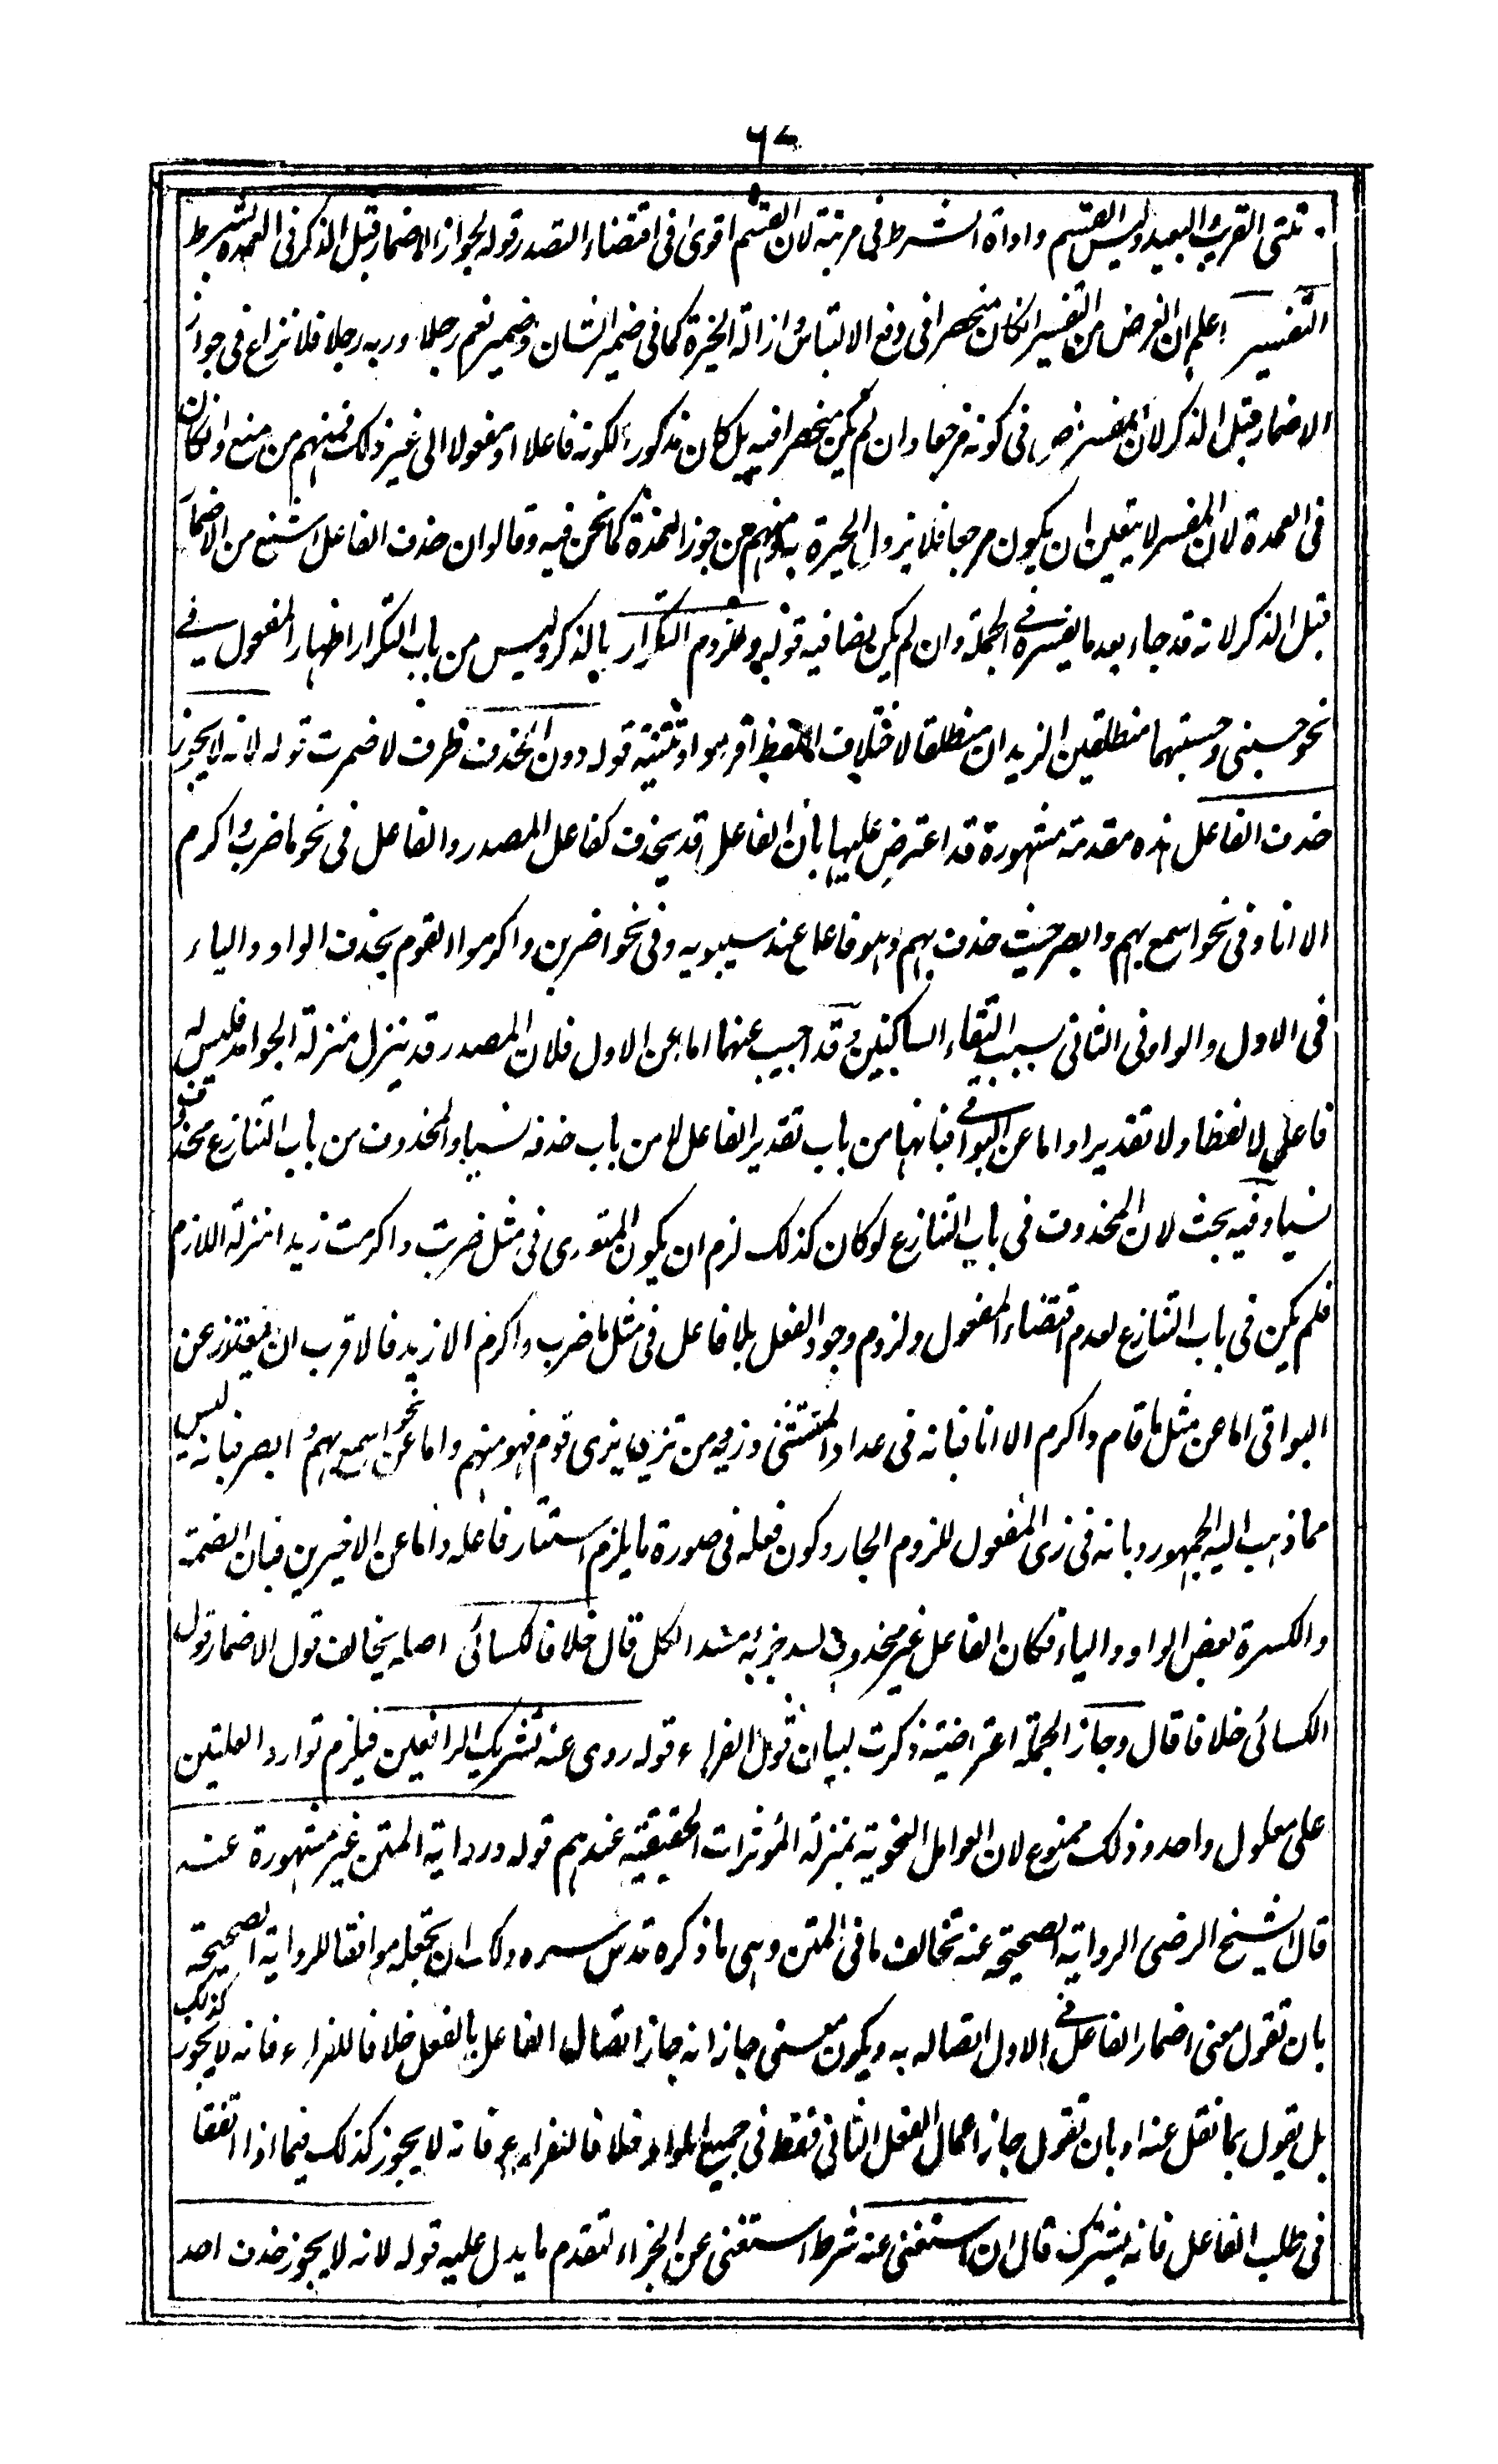 ٦٧
تلتى القريب والبعيد وليس القسم واداة الشرط فى مرتبة لان القسم اقوى فى اقتضاء التصدر قوله لجواز الاضمار قبل الذكر فى العمدة بشرط
التفسير اعلم ان الغرض من التفسير انكان منحصرا فى دفع الالتباس وازالة الحيرة كما فى ضمير الشان وضمير نعم رجلا وربه رجلا فلا نزاع فى جواز
الاضمار قبل الذكر لان المفسر نص فى كونه مرجعا وان لم يكن منحصرا فيه بل كان مذكورا لكونه فاعلا او مفعولا الى غير ذلك فمنهم من منع وان كان
فى العمدة لان المفسر لا يتعين ان يكون مرجعا فلا يزول الحيرة به ومنهم من جوز العمدة كما نحن فيه وقالوا ان حذف الفاعل اشنع من الاضمار
قبل الذكر لانه قد جاء بعد ما يفسره فى الجملة وان لم يكن نصا فيه قوله ولزوم التكرار بالذكر وليس من باب التكرار اظهار المفعول فى
نحو حسبنى وحسبتهما منطلقين الزيدان منطلقا لاختلاف اللفظ افرادا وتثنية قوله دون الحذف ظرف لاضمرت قوله لانه لا يجوز
حذف الفاعل هذه مقدمة مشهورة قد اعترض عليها بان الفاعل قد يحذف كفاعل المصدر والفاعل فى نحو ما ضرب واكرم
الا انا وفى نحو اسمع بهم وابصر حيث حذف بهم وهو فاعل عند سيبويه وفى نحو اضربن واكرموا القوم بحذف الواو والياء
فى الاول والواو فى الثانى بسبب التقاء الساكنين وقد اجيب عنهما اما عن الاول فلان المصدر قد ينزل منزلة الجوامد فليس له
فاعل لا لفظا ولا تقديرا واما عن البواقى فبانها من باب تقدير الفاعل لا من باب حذفه نسيا والمحذوف من باب التنازع محذوف
نسيا وفيه بحث لان المحذوف فى باب التنازع لو كان كذلك لزم ان يكون المتعدى فى مثل ضربت واكرمت زيدا منزلة اللازم
فلم يكن فى باب التنازع لعدم اقتضاء المفعول ولزوم وجود الفعل بلا فاعل فى مثل ما ضرب واكرم الا زيد فالاقرب ان يعتذر عن
البواقى اما عن مثل ما قام واكرم الا انا فبانه فى عداد المستثنى وزيه من تزيا بزى قوم فهو منهم واما عن نحو اسمع بهم وابصر فبانه ليس
مما ذهب اليه الجمهور وبانه فى زى المفعول للزوم الجار وكون فعله فى صورة ما يلزم استتار فاعله واما عن الاخيرين فبان الضمة
والكسرة بعض الواو والياء فكان الفاعل غير محذوف لسد جزئه مسد الكل قال خلافا للكسائى اصله يخالف قول الاضمار قول
الكسائى خلافا قال وجاز الجملة اعتراضية ذكرت لبيان قول الفراء قوله روى عنه تشريك الرافعين فيلزم توارد العلتين
على معلول واحد وذلك ممنوع لان العوامل النحوية بمنزلة المؤثرات الحقيقية عندهم قوله ورواية المتن غير مشهورة عنه
قال الشيخ الرضى الرواية الصحيحة عنه تخالف ما فى المتن وهى ما ذكره قدس سره ولك ان تجعله موافقا للرواية الصحيحة
بان تقول معنى اضمار الفاعل فى الاول اتصاله به ويكون معنى جاز انه جاز اتصال الفاعل بالفعل خلافا للفراء فانه لا يجوز كذلك
بل يقول بما نقل عنه او بان تقول جاز اعمال الفعل الثانى فقط فى جميع المواد خلافا للفراء فانه لا يجوز كذلك فيما اذا اتفقا
فى طلب الفاعل فانه يشترك قال ان استغنى عنه شرط استغنى عن الجزاء لتقدم ما يدل عليه قوله لانه لا يجوز حذف احد